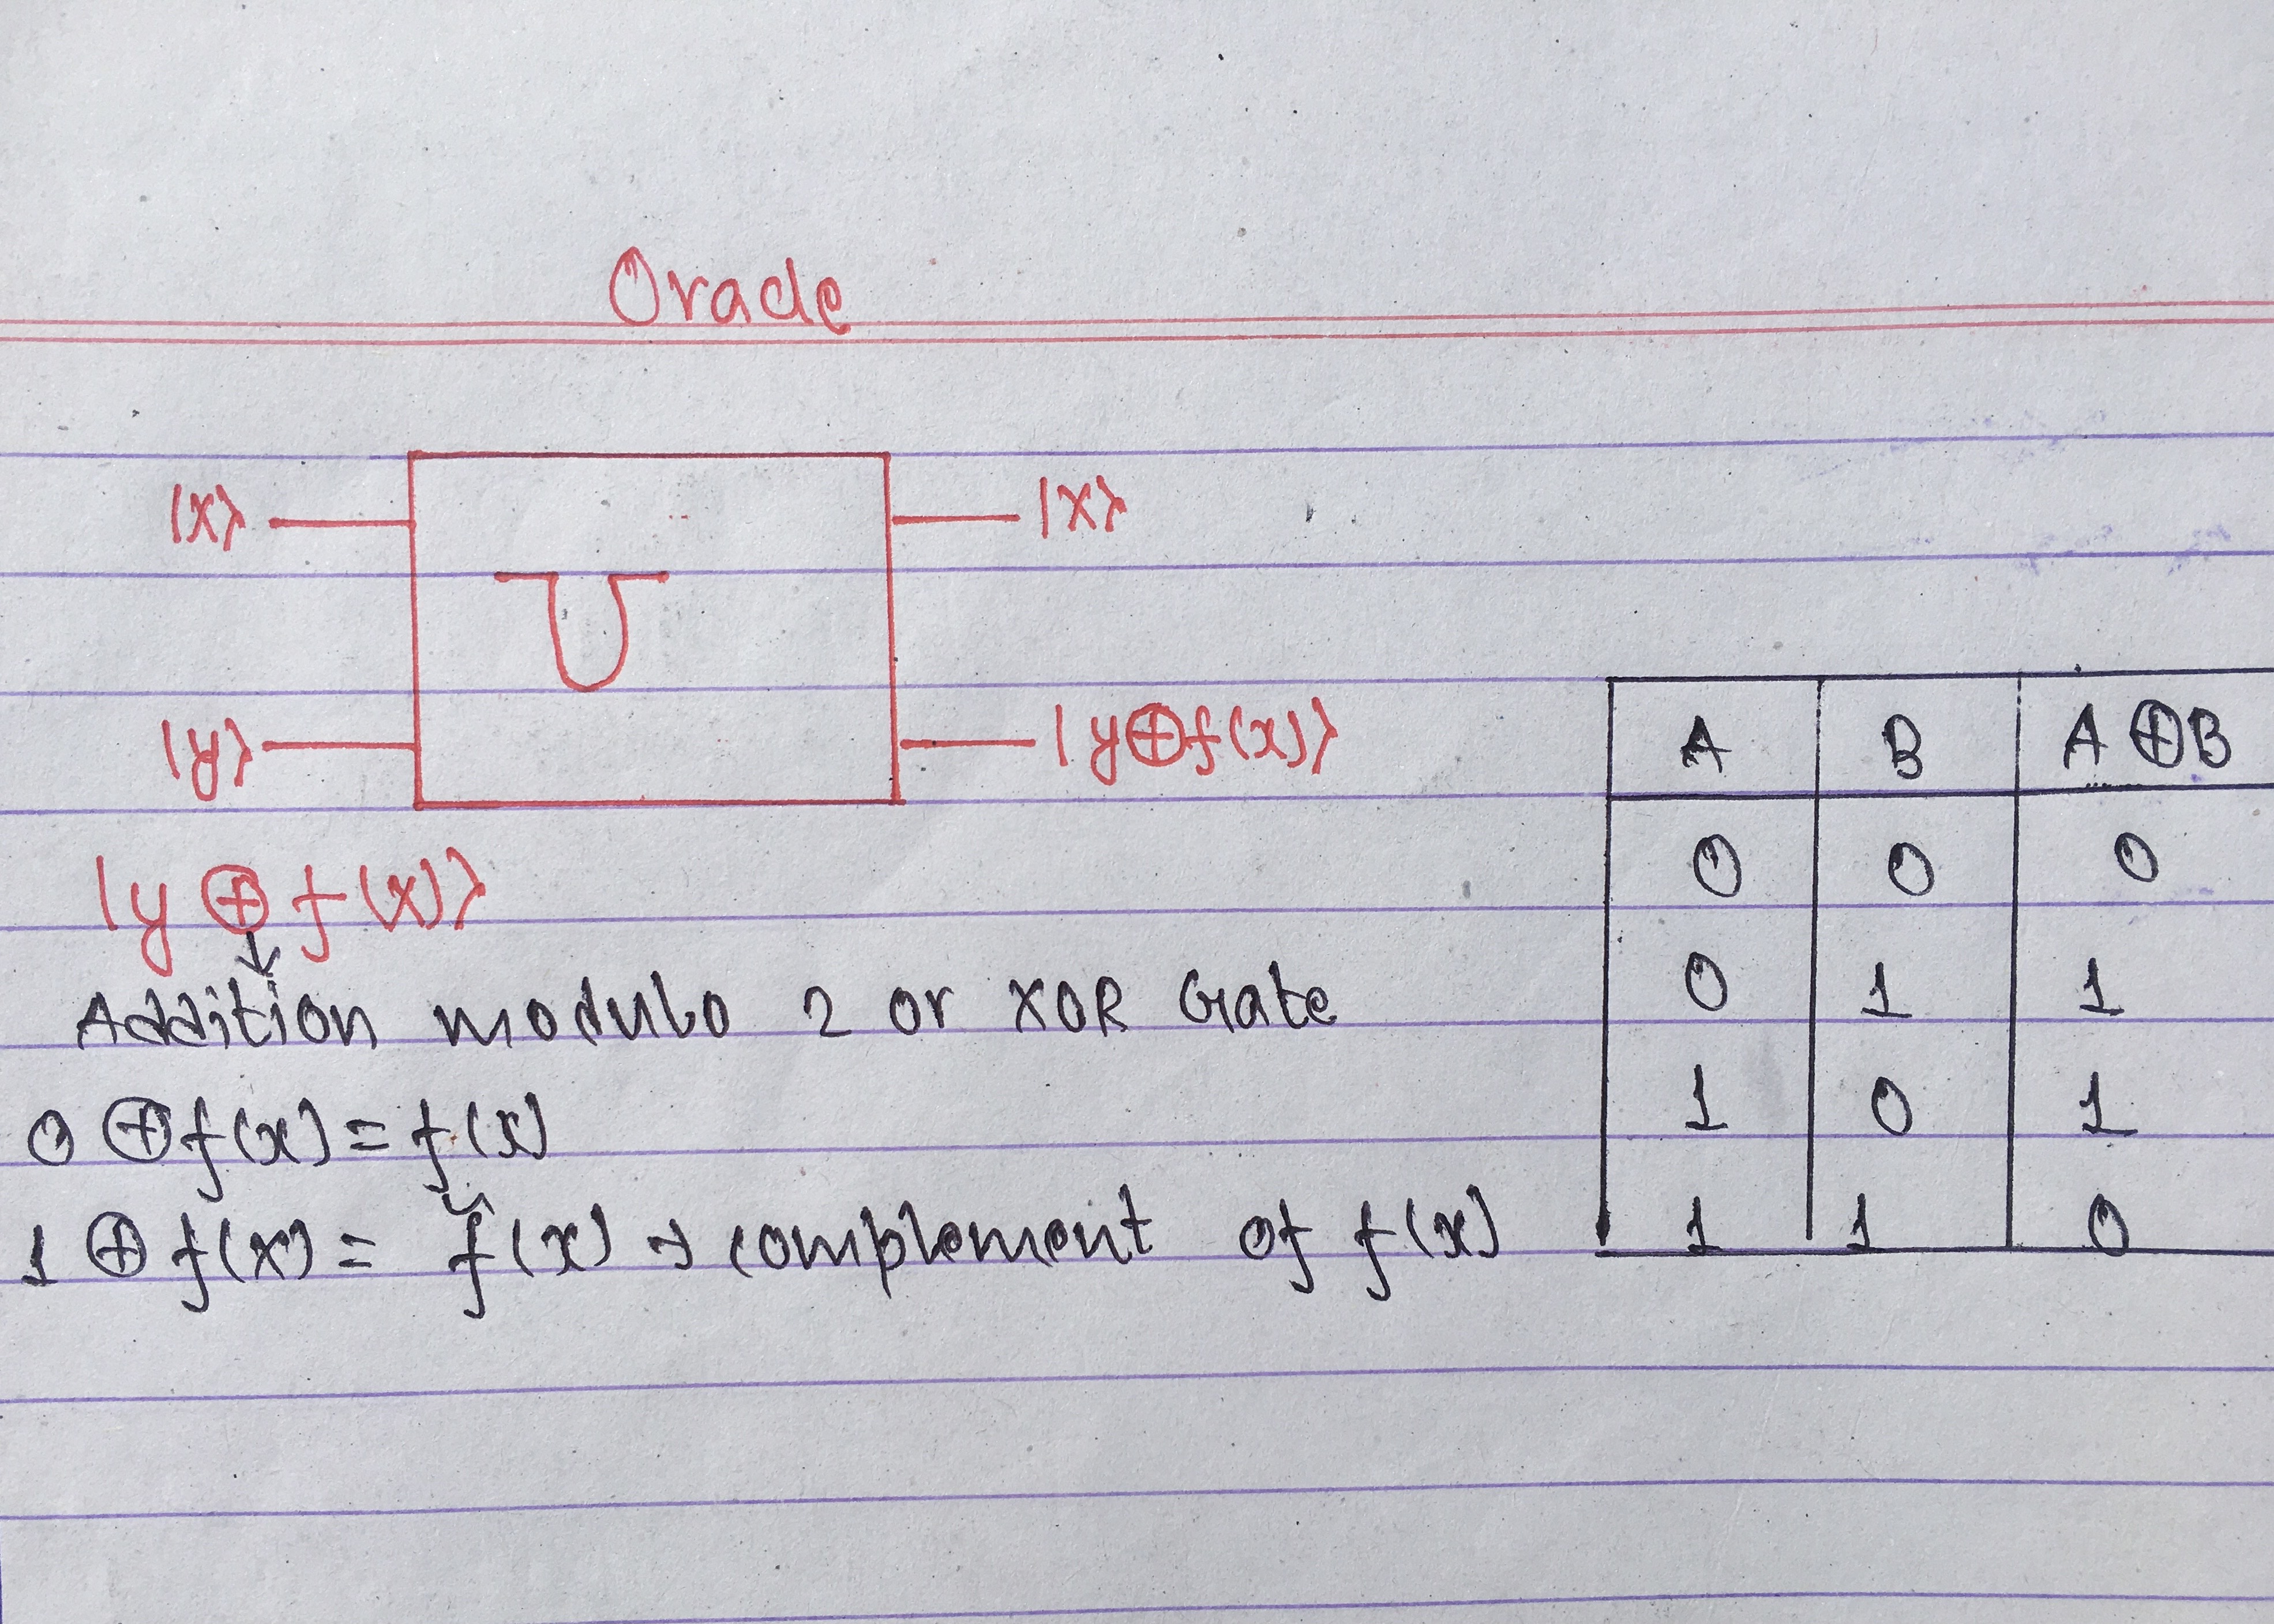 Oracle
|x⟩ |x⟩
U
|y⟩ |y⊕f(x)⟩
|y ⊕ f(x)⟩
↓
Addition modulo 2 or XOR Gate
0 ⊕ f(x) = f(x)
1 ⊕ f(x) = f̃(x) → complement of f(x)
A B A ⊕ B
0 0 0
0 1 1
1 0 1
1 1 0